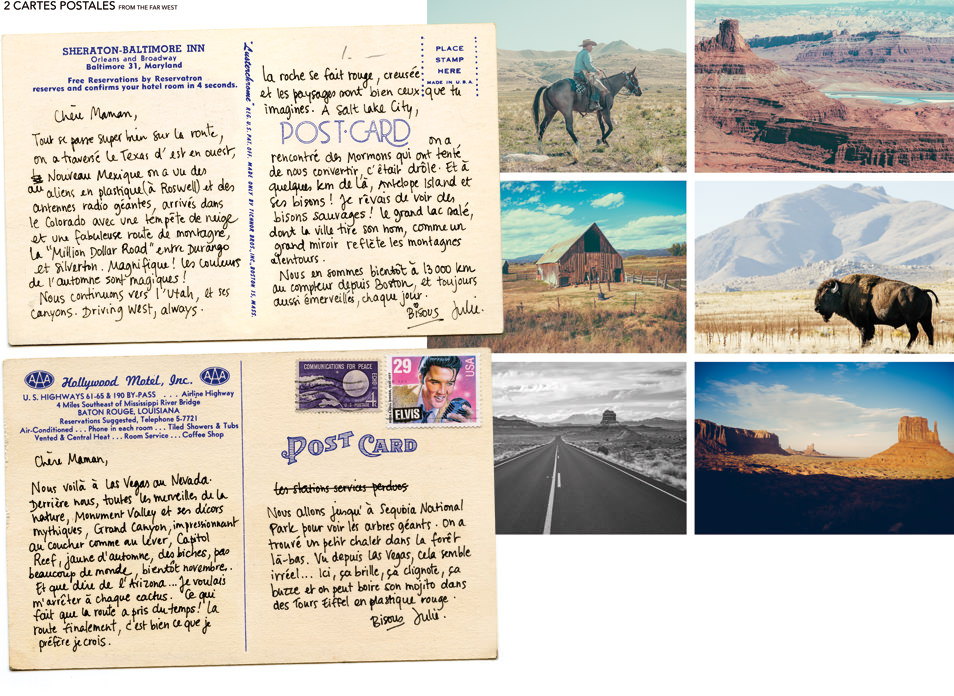 2 CARTES POSTALES FROM THE FAR WEST
SHERATON-BALTIMORE INN
Orleans and Broadway
Baltimore 31, Maryland
Free Reservations by Reservatron
reserves and confirms your hotel room in 4 seconds.
Chère Maman,
Tout se passe super bien sur la route,
on a traversé le Texas d'est en ouest,
au Nouveau Mexique on a vu des
aliens en plastique (à Roswell) et des
antennes radio géantes, arrivés dans
le Colorado avec une tempête de neige
et une fabuleuse route de montagne,
la "Million Dollar Road" entre Durango
et Silverton. Magnifique! les couleurs
de l'automne sont magiques!
Nous continuons vers l'Utah, et ses
canyons. Driving West, always.
"Lusterchrome" REG. U.S. PAT. OFF. MADE ONLY BY TICHNOR BROS., INC., BOSTON 15, MASS.
PLACE
STAMP
HERE
MADE IN U.S.A.
la roche se fait rouge, creusée
et les paysages sont bien ceux que tu
imagines. A Salt Lake City,
POST-CARD
on a
rencontré des Mormons qui ont tenté
de nous convertir, c'était drôle. Et à
quelques km de là, Antelope Island et
ses bisons! Je rêvais de voir des
bisons sauvages! le grand lac salé,
dont la ville tire son nom, comme un
grand miroir reflète les montagnes
alentours.
Nous en sommes bientôt à 13 000 km
au compteur depuis Boston, et toujours
aussi émerveillés, chaque jour.
Bisous Julie.
AAA Hollywood Motel, Inc. AAA
U. S. HIGHWAYS 61-65 & 190 BY-PASS . . . Airline Highway
4 Miles Southeast of Mississippi River Bridge
BATON ROUGE, LOUISIANA
Reservations Suggested, Telephone 5-7721
Air-Conditioned . . . Phone in each room . . . Tiled Showers & Tubs
Vented & Central Heat . . . Room Service . . . Coffee Shop
Chère Maman,
Nous voilà à Las Vegas au Nevada.
Derrière nous, toutes les merveilles de la
nature, Monument Valley et ses décors
mythiques, Grand Canyon, impressionnant
au coucher comme au lever, Capitol
Reef, jaune d'automne, des biches, pas
beaucoup de monde, bientôt novembre..
Et que dire de l'Arizona... Je voulais
m'arrêter à chaque cactus. Ce qui
fait que la route a pris du temps! La
route finalement, c'est bien ce que je
préfère je crois.
COMMUNICATIONS FOR PEACE
29
USA
ELVIS
POST CARD
Les stations services perdues
Nous allons jusqu'à Sequoia National
Park pour voir les arbres géants. On a
trouvé un petit chalet dans la forêt
là-bas. Vu depuis Las Vegas, cela semble
irréel... Ici, ça brille, ça clignote, ça
buzze et on peut boire son mojito dans
des Tours Eiffel en plastique rouge.
Bisous Julie.